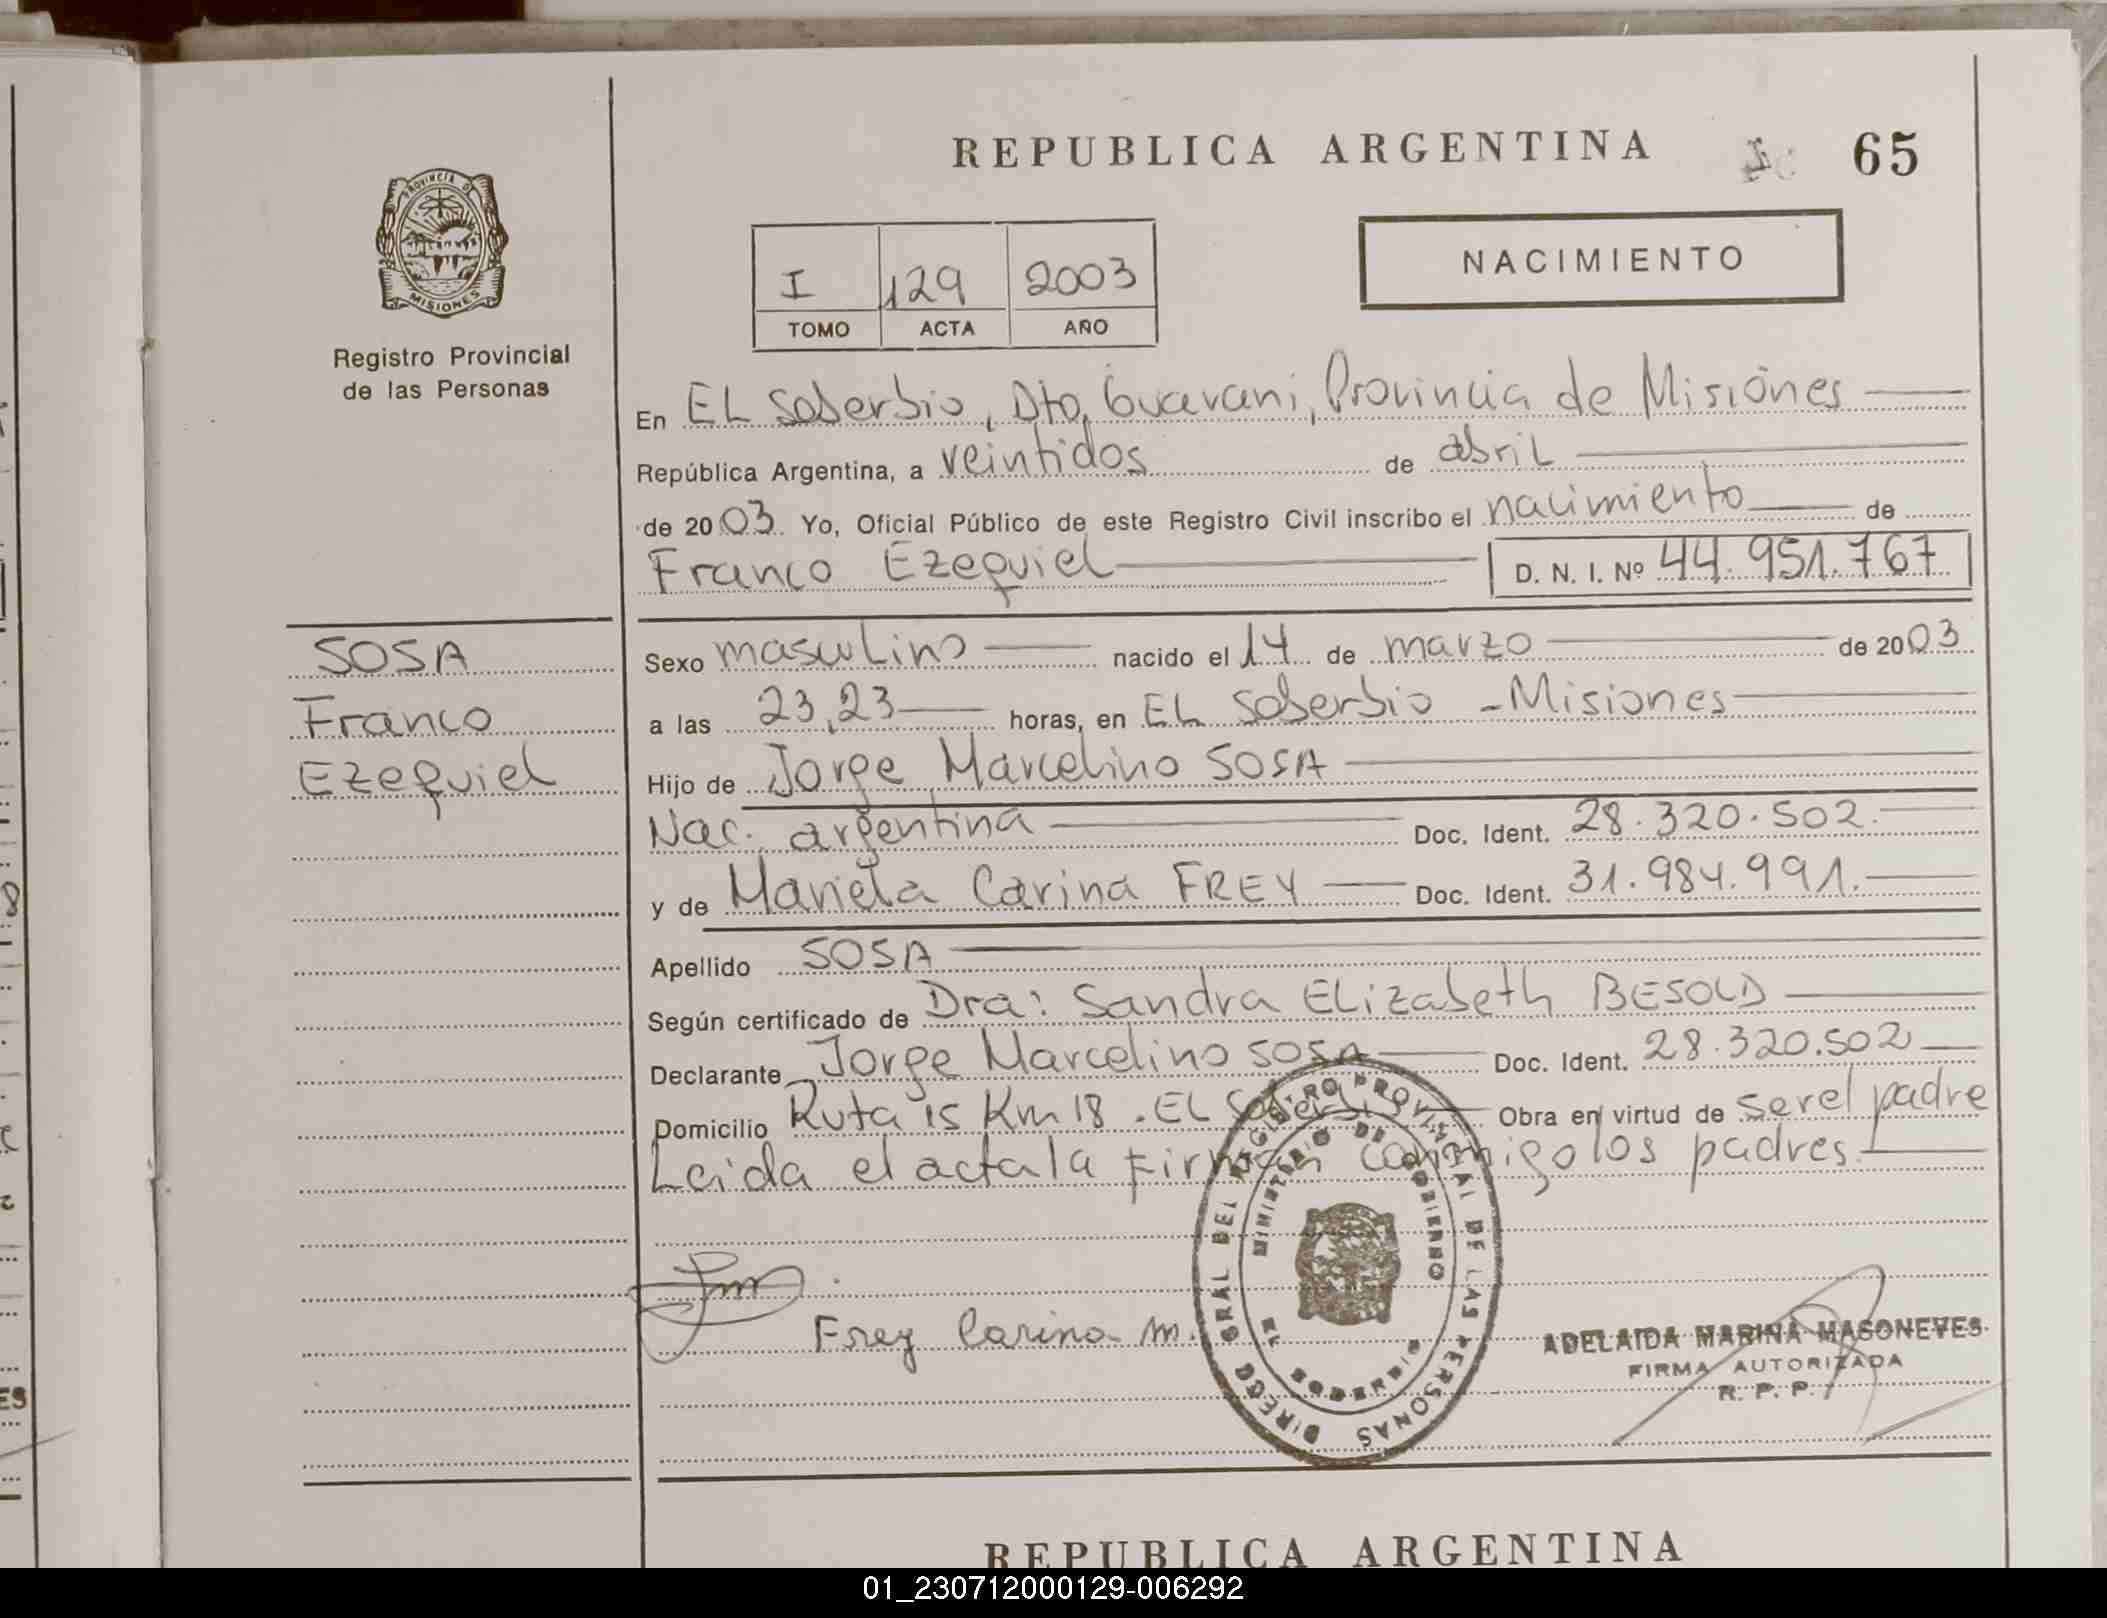 REPUBLICA ARGENTINA
65
PROVINCIA DE
MISIONES
Registro Provincial
de las Personas
I 129 2003
TOMO ACTA AÑO
NACIMIENTO
En EL Soberbio, Dto, Guarani, Provincia de Misiones
República Argentina, a veintidos de abril
de 2003. Yo, Oficial Público de este Registro Civil inscribo el nacimiento de
Franco Ezequiel D. N. I. Nº 44.951.767
SOSA
Franco
Ezequiel
Sexo masculino nacido el 14 de marzo de 2003
a las 23,23 horas, en EL Soberbio - Misiones
Hijo de Jorge Marcelino SOSA
Nac. argentina Doc. Ident. 28.320.502.
y de Mariela Carina FREY Doc. Ident. 31.984.991.
Apellido SOSA
Según certificado de Dra: Sandra ELizabeth BESOLD
Declarante Jorge Marcelino SOSA Doc. Ident. 28.320.502
Domicilio Ruta 15 Km 18. EL Soberbio Obra en virtud de ser el padre
Leida el acta la firman conmigo los padres
Frey Carina M.
DIRECC GRAL DEL REGISTRO PROVINCIAL DE LAS PERSONAS
MINISTERIO DE GOBIERNO
MISIONES
ADELAIDA MARINA MASONEVES
FIRMA AUTORIZADA
R. P. P.
REPUBLICA ARGENTINA
01_230712000129-006292